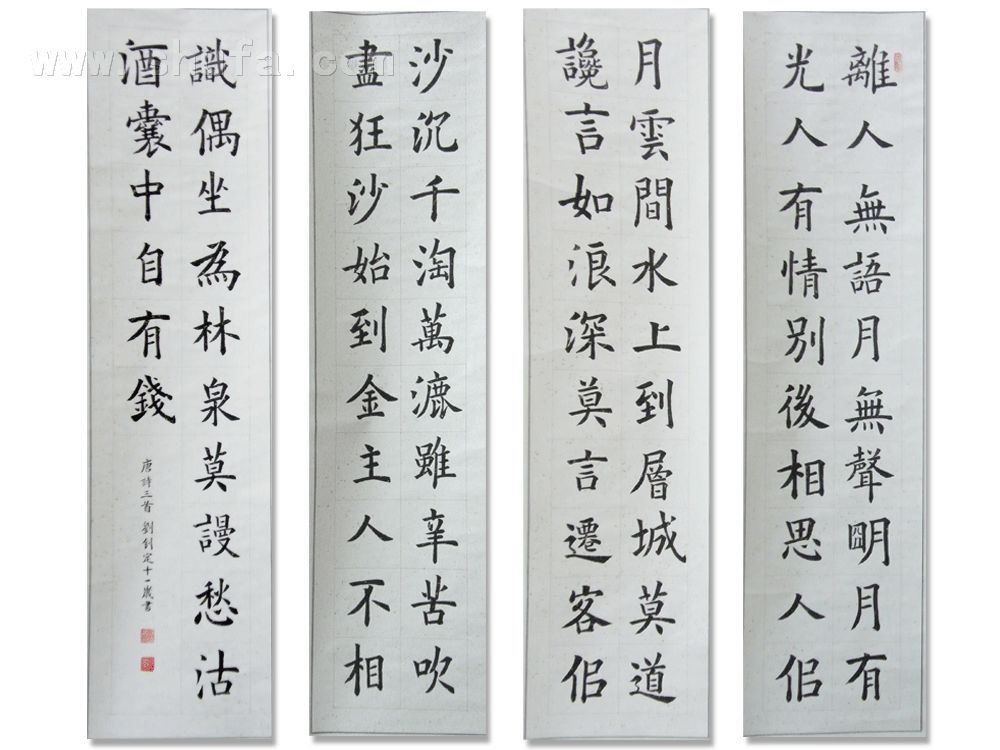 離人無語月無聲明月有
光人有情別後相思人佀
月雲間水上到層城莫道
讒言如浪深莫言遷客佀
沙沉千淘萬漉雖辛苦吹
盡狂沙始到金主人不相
識偶坐為林泉莫謾愁沽
酒囊中自有錢
唐詩三首 劉創定十一歲書